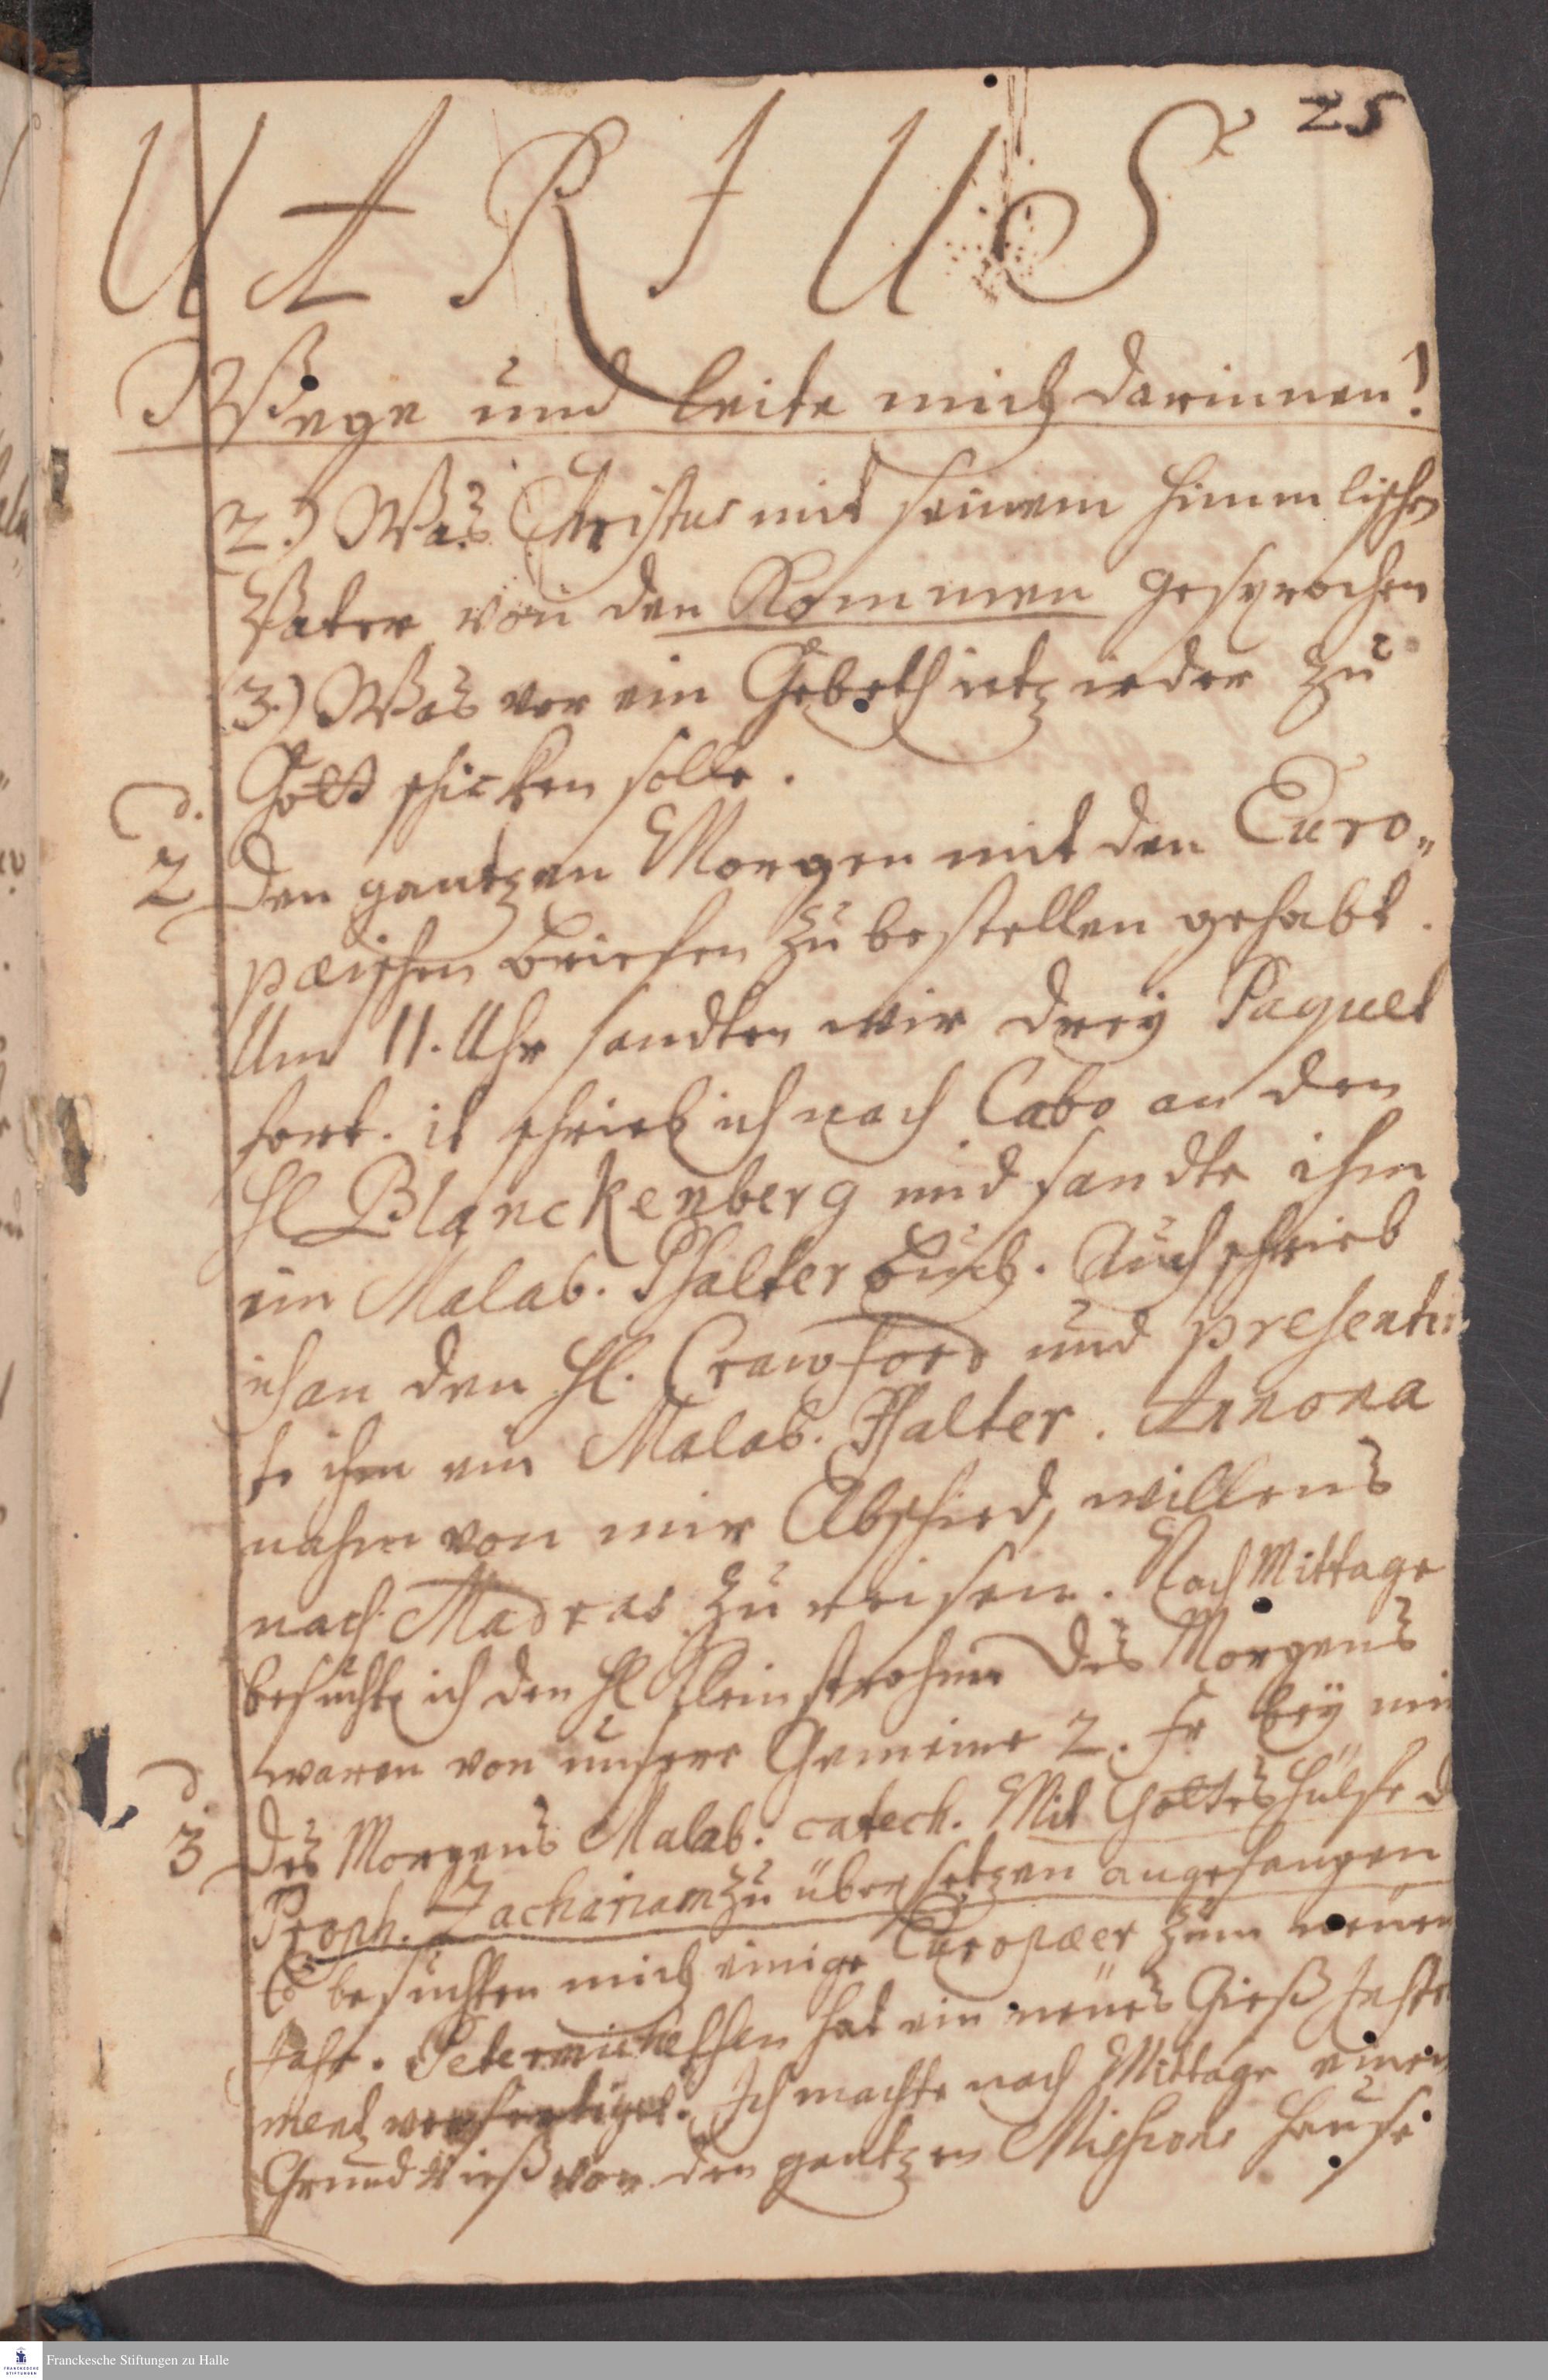 25
U A R I U S
Wege und leite mich darinnen!
2.) Was Christus mit seinem himmlischen
Vater von den Kommen gesprochen
3.) Was vor ein Gebeth ietz ieder zu
Gott schicken solle.
d.
2 Den gantzen Morgen mit den Euro„
pæischen Briefen zu bestellen gehabt.
Um 11. Uhr sandten wir drey Paquet
fort. it schrieb ich nach Cabo an den
Hl Blanckenberg und sandte ihm
ein Malab. Psalter Buch. Auch schrieb
ich an den Hl. Crawford und presentir
te ihm ein Malab. Psalter. Annona
nahm von mir Abschied, willens
nach Madras zu reisen. Nach Mittage
besuchte ich den Hl Kleinstrohm Des Morgens
waren von unsere Gemeine 2. Fr bey mir
d.
3 Des Morgens Malab. catech. Mit Gottes Hülfe d
Proph. Zachariam zu übersetzen angefangen
Es besuchten mich einige Europæer zum neuen
Jahr. Petermichelsen hat ein neues Gieß Instru
ment verfertiget. Ich machte nach Mittage einen
Grund Rieß von den gantzen Missions Hause
Franckesche Stiftungen zu Halle